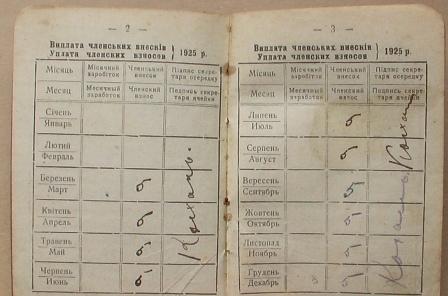 — 2 —
Виплата членських внесків
Уплата членских взносов } 1925 р.
Місяць Місячний заробіток Членський внесок Підпис секретаря осередку
Месяц Месячный заработок Членский взнос Подпись секретаря ячейки
Січень
Январь
Лютий
Февраль
Березень
Март
Квітень
Апрель
Травень
Май
Червень
Июнь
— 3 —
Виплата членських внесків
Уплата членских взносов } 1925 р.
Місяць Місячний заробіток Членський внесок Підпис секретаря осередку
Месяц Месячный заработок Членский взнос Подпись секретаря ячейки
Липень
Июль
Серпень
Август
Вересень
Сентябрь
Жовтень
Октябрь
Листопад
Ноябрь
Грудень
Декабрь